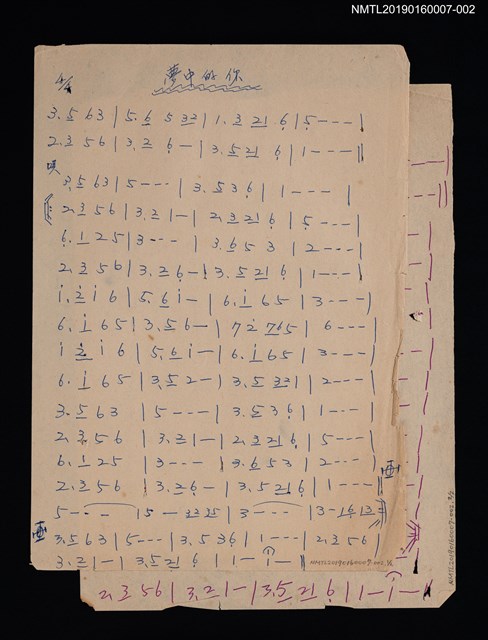 NMTL20190160007-002
4/4 夢中的你
3. 5 6 3 | 5. 6 5 3 2 | 1. 3 2 1 6 | 5 - - - |
2. 3 5 6 | 3. 2 6 - | 3. 5 2 1 6 | 1 - - - ‖
唄
3. 5 6 3 | 5 - - - | 3. 5 3 6 | 1 - - - |
2. 3 5 6 | 3. 2 1 - | 2. 3 2 1 6 | 5 - - - |
6. 1 2 5 | 3 - - - | 3. 6 5 3 | 2 - - - |
2. 3 5 6 | 3. 2 6 - | 3. 5 2 1 6 | 1 - - - |
i. 2 i 6 | 5. 6 i - | 6. i 6 5 | 3 - - - |
6. i 6 5 | 3. 5 6 - | 7 2 7 6 5 | 6 - - - |
i 2 i 6 | 5. 6 i - | 6. i 6 5 | 3 - - - |
6. i 6 5 | 3. 5 2 - | 3. 5 3 2 1 | 2 - - - ‖
3. 5 6 3 | 5 - - - | 3. 5 3 6 | 1 - - - |
2. 3 5 6 | 3. 2 1 - | 2. 3 2 1 6 | 5 - - - |
6. 1 2 5 | 3 - - - | 3. 6 5 3 | 2 - - - |
2. 3 5 6 | 3. 2 6 - | 3. 5 2 1 6 | 1 - - - ‖
5 - - - | 5 - 3 2 3 5 | 3 - - - | 3 - 1 6 1 2 ‖
3. 5 6 3 | 5 - - - | 3. 5 3 6 | 1 - - - | 2. 3 5 6 |
3. 2 1 - | 3. 5 2 1 6 | 1 - 1 - ‖
NMTL20190160007-002. 1/2
2. 3 5 6 | 3. 2 1 - | 3. 5 2 1 6 | 1 - 1 - ‖
NMTL20190160007-002. 2/2